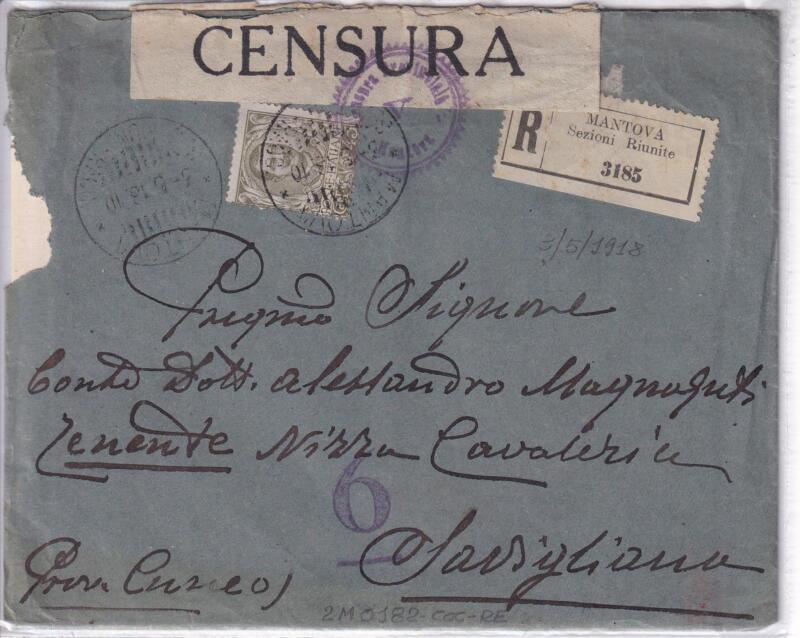 CENSURA
R
MANTOVA
Sezioni Riunite
3185
MANTOVA
3/5/1918
Pregmo Signore
Conte Dott. Alessandro Magnaguti
Tenente Nizza Cavalleria
6
Savigliano
(Prov. Cuneo)
2M0182-COC-RE